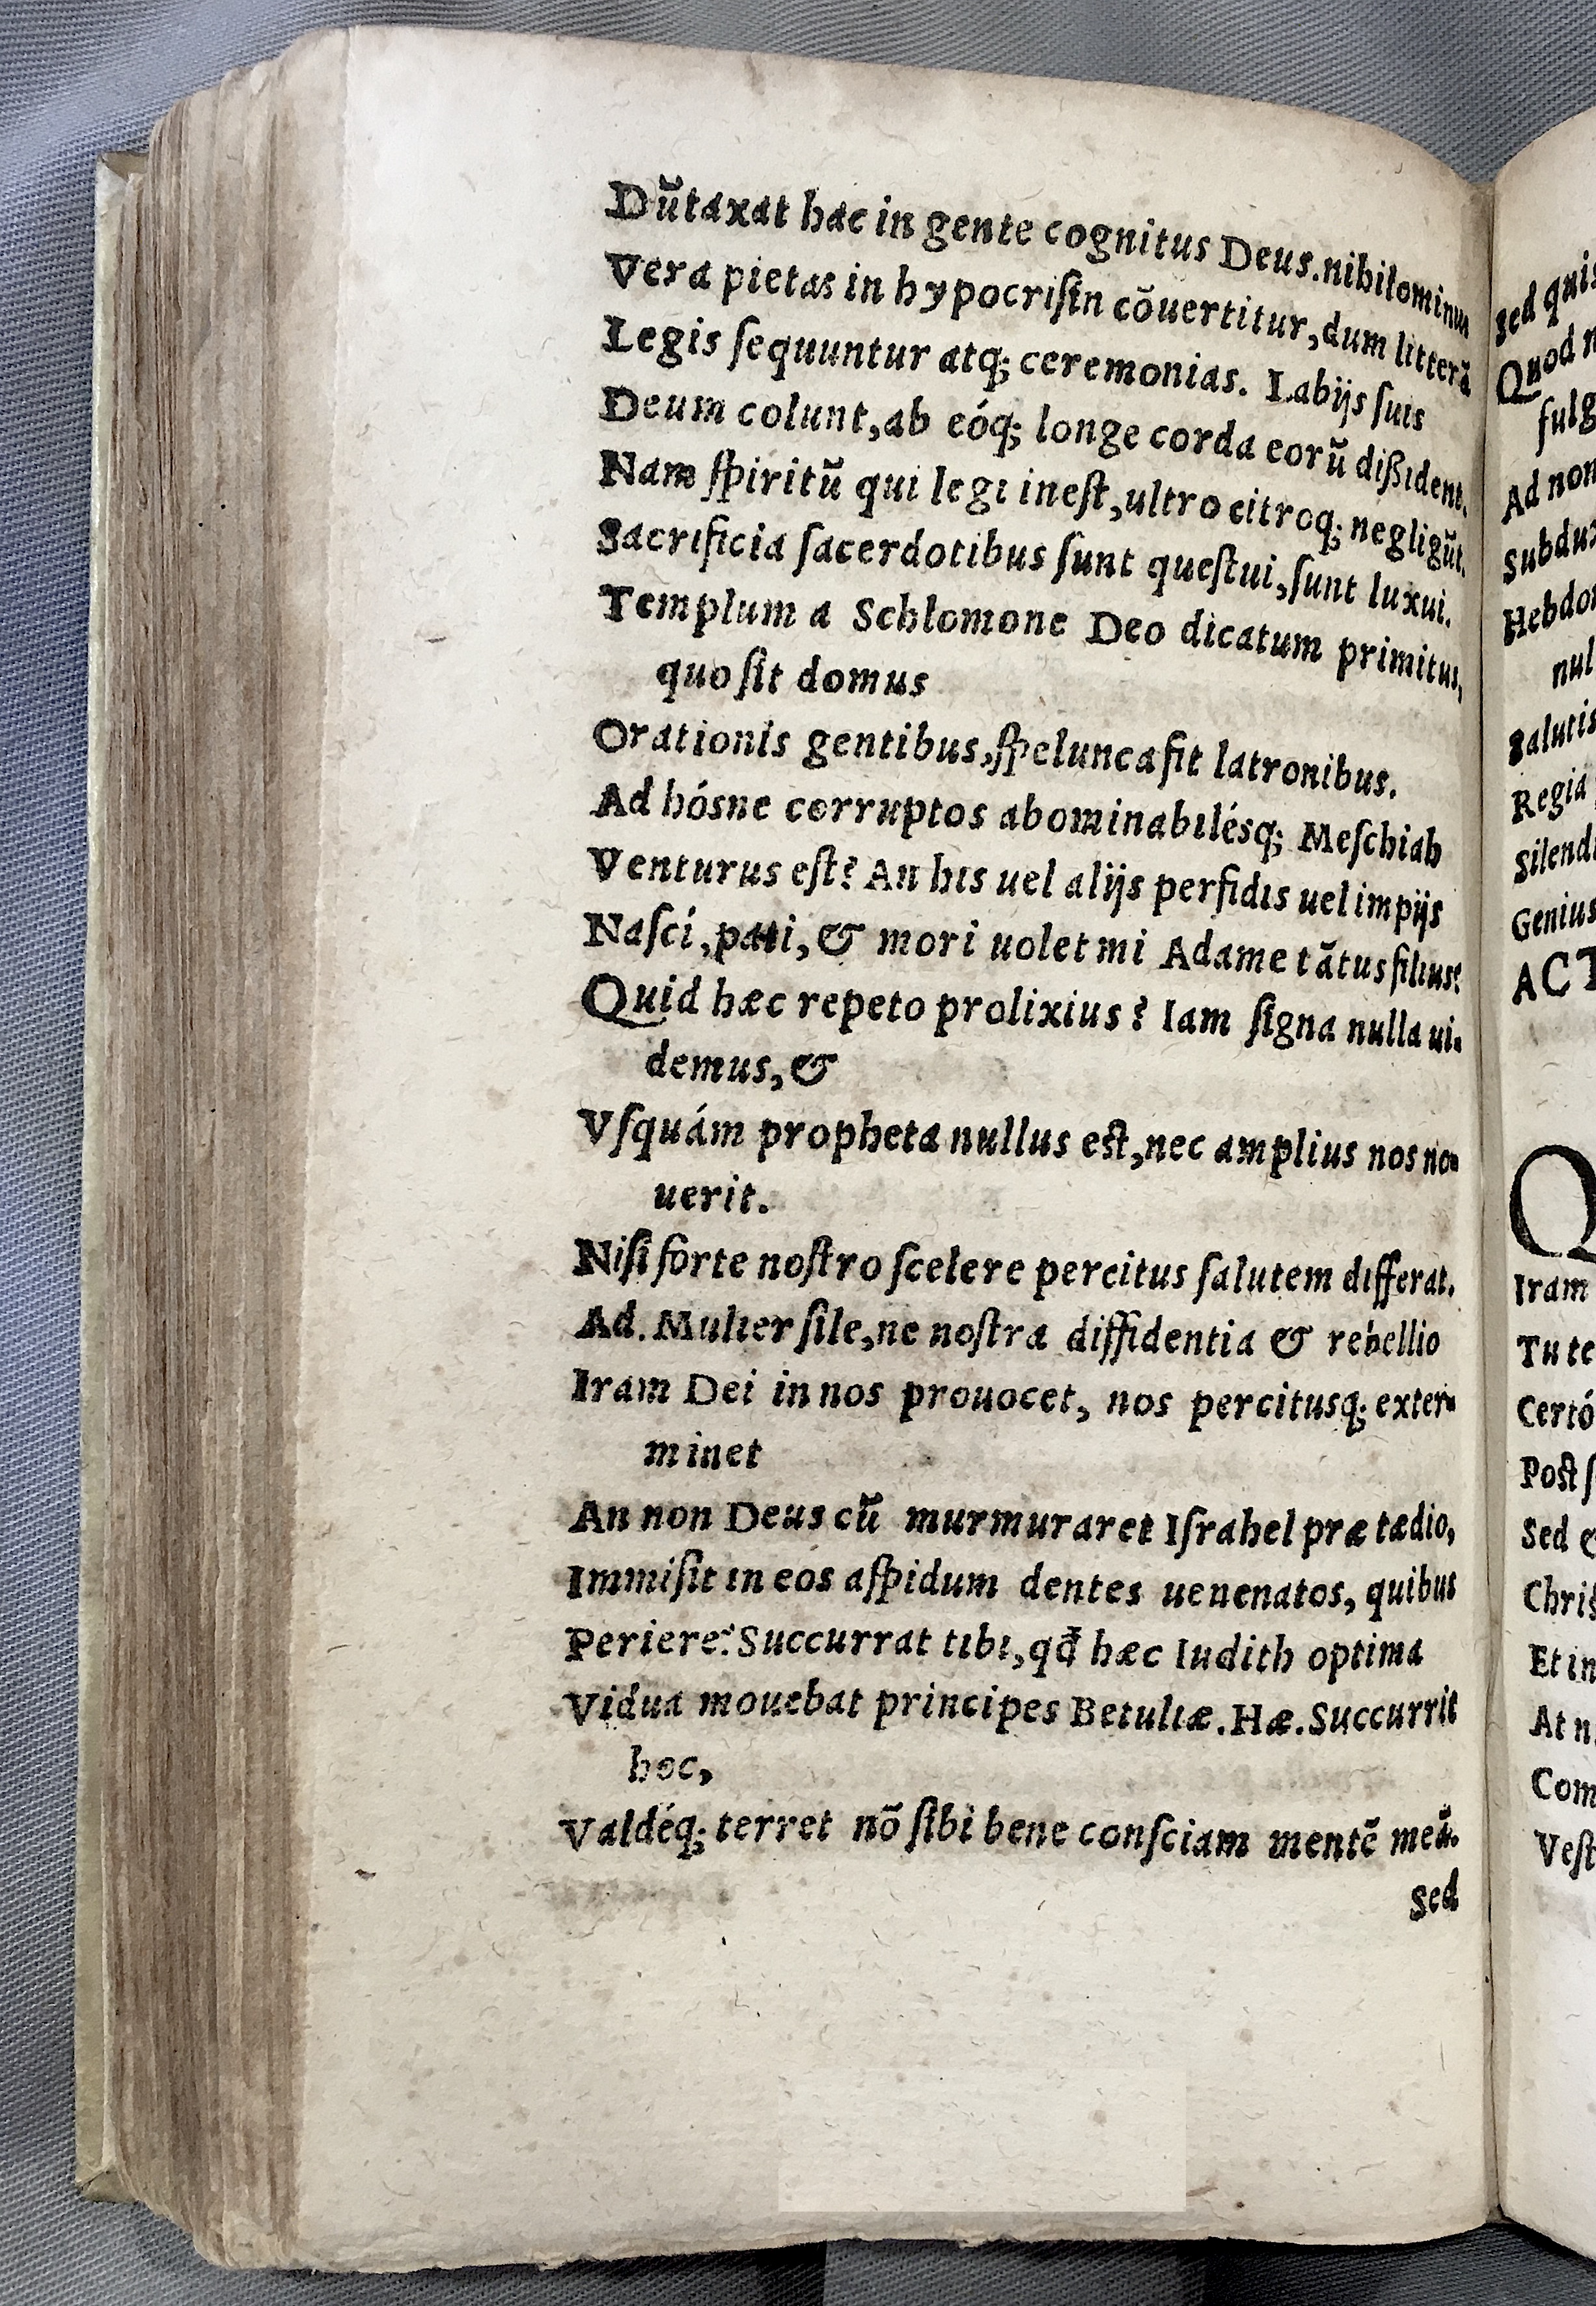 Dũtaxat hac in gente cognitus Deus.nihilominus
Vera pietas in hypocriſin cõuertitur,dum litterã
Legis ſequuntur atq; ceremonias. Labijs ſuis
Deum colunt,ab eóq; longe corda eorũ dißident.
Nam ſpiritũ qui legi ineſt,ultro citroq; negligũt.
Sacrificia ſacerdotibus ſunt queſtui,ſunt luxui.
Templum a Schlomone Deo dicatum primitus,
quo ſit domus
Orationis gentibus,ſpelunca fit latronibus.
Ad hósne corruptos abominabilésq; Meſchiah
Venturus eſt? An his uel alijs perfidis uel impijs
Naſci,pati,& mori uolet mi Adame tãtus filius?
Quid hæc repeto prolixius? Iam ſigna nulla ui-
demus,&
Vſquám propheta nullus eſt,nec amplius nos no-
uerit.
Niſi forte noſtro ſcelere percitus ſalutem differat.
Ad. Mulier ſile,ne noſtra diffidentia & rebellio
Iram Dei in nos prouocet, nos percitusq; exter-
minet
An non Deus cũ murmuraret Iſrahel præ tædio,
Immiſit in eos aſpidum dentes uenenatos, quibus
Periere? Succurrat tibi,qđ hæc Iudith optima
Vidua mouebat principes Betuliæ. Hæ. Succurrit
hoc,
Valdéq; terret nõ ſibi bene conſciam mentẽ meã.
Sed
Sed quis
Quod
fulg
Ad non
Subdux
Hebdo
nul
Salutis
Regia
Silend
Genius
ACT
Q
Iram
Tu te
Certó
Poſt
Sed
Chriſ
Et in
At n
Com
Veſt